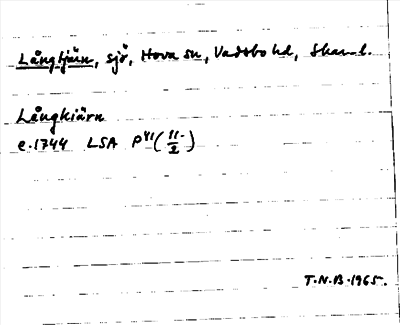 Långtjärn, sjö, Hova sn, Vadsbo hd, Skar. l.
Långkiärn
e.1744 LSA P41(11-/2)
T.N.B. 1965.